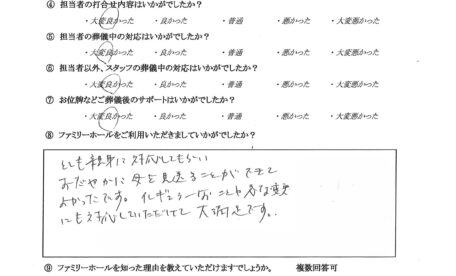 ④ 担当者の打合せ内容はいかがでしたか？
・大変良かった ・良かった ・普通 ・悪かった ・大変悪かった
⑤ 担当者の葬儀中の対応はいかがでしたか？
・大変良かった ・良かった ・普通 ・悪かった ・大変悪かった
⑥ 担当者以外、スタッフの葬儀中の対応はいかがでしたか？
・大変良かった ・良かった ・普通 ・悪かった ・大変悪かった
⑦ お位牌などご葬儀後のサポートはいかがでしたか？
・大変良かった ・良かった ・普通 ・悪かった ・大変悪かった
⑧ ファミリーホールをご利用いただきましていかがでしたか？
とても親身に対応してもらい
おだやかに母を見送ることができて
よかったです。イレギュラーなことや急な変更
にも対応していただけて大満足です。
⑨ ファミリーホールを知った理由を教えていただけますでしょうか。 複数回答可